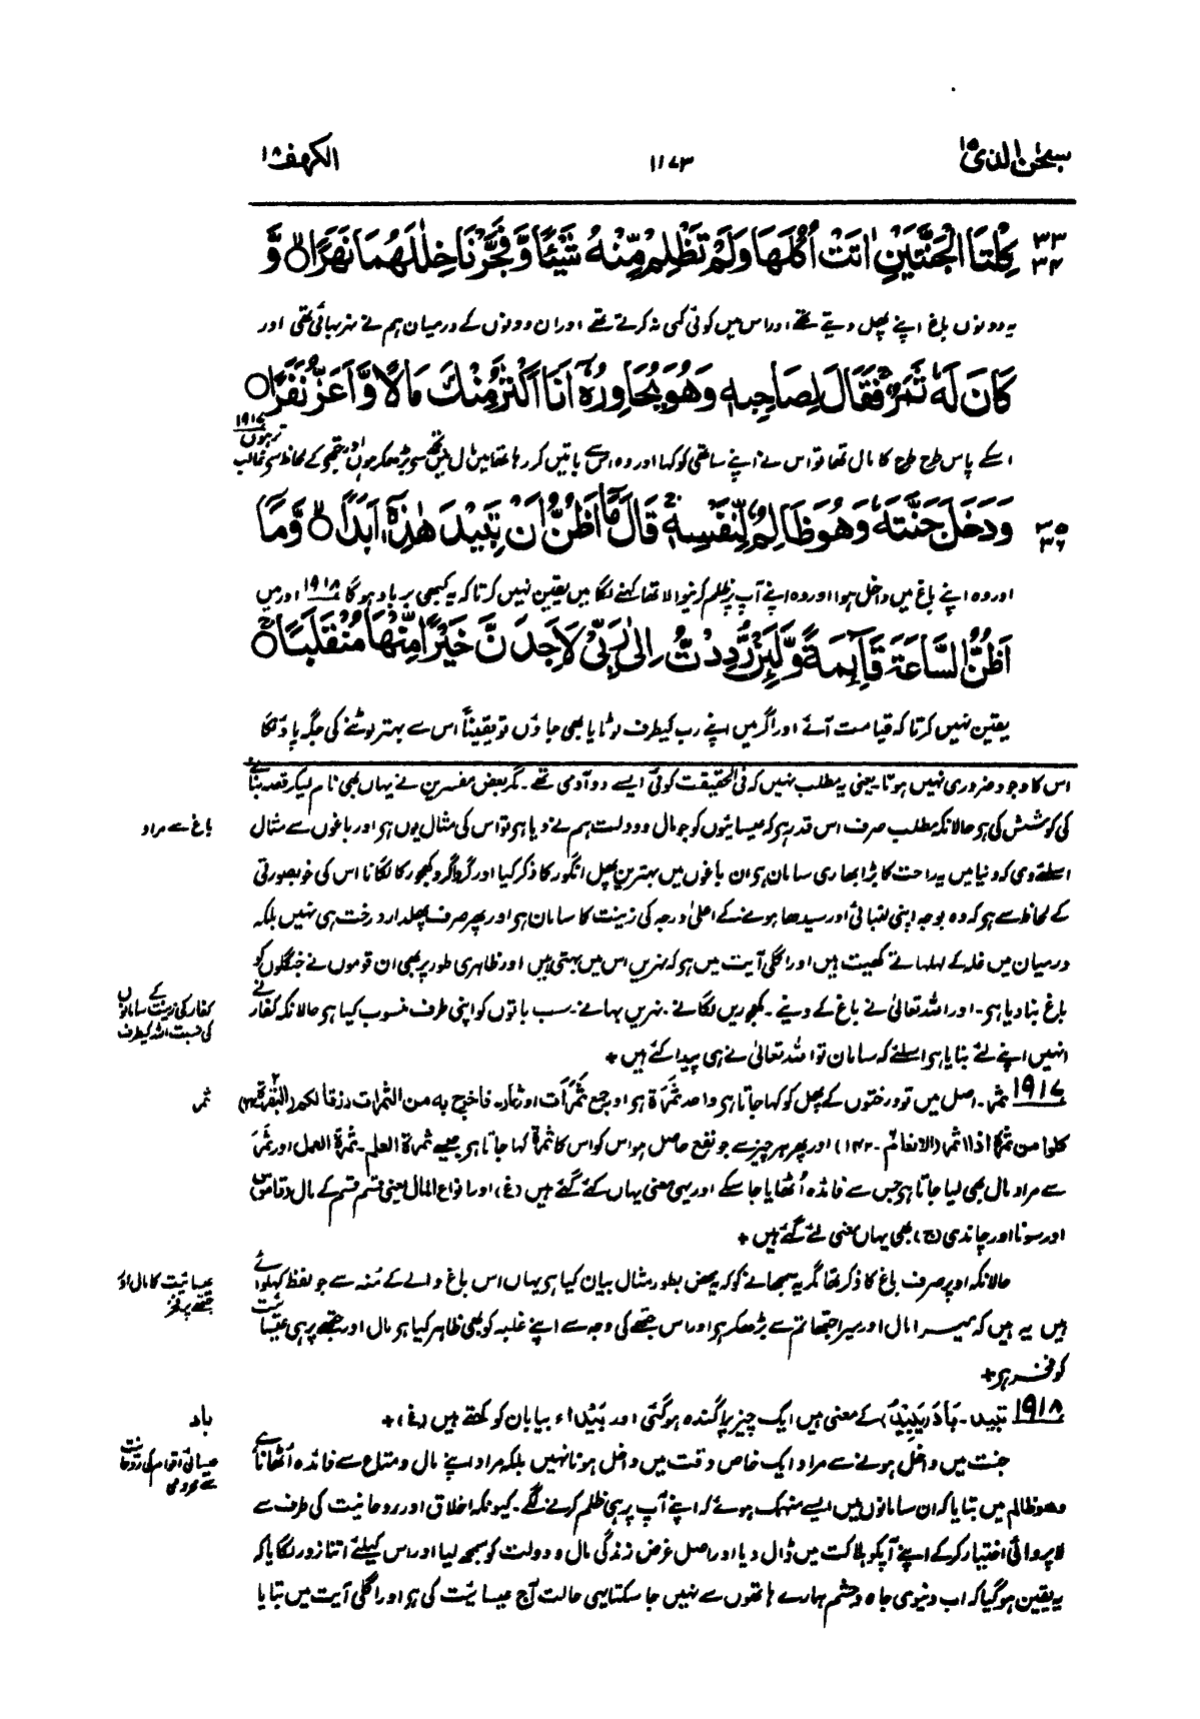 سبحٰن الذی ۱۵
۱۱۷۳
الکہف ۱۸
۳۳ ۳۴ كِلْتَا الْجَنَّتَيْنِ اٰتَتْ اُكُلَهَا وَلَمْ تَظْلِمْ مِّنْهُ شَيْـًٔا وَّفَجَّرْنَا خِلٰلَهُمَا نَهَرًا ۙ وَّ
یہ دونوں باغ اپنے پھل دیتے تھے اور اس میں کوئی کمی نہ کرتے تھے اور ان دونوں کے درمیان ہم نے نہر بہائی تھی اور
كَانَ لَهٗ ثَمَرٌ ۚ فَقَالَ لِصَاحِبِهٖ وَهُوَ يُحَاوِرُهٗٓ اَنَا اَكْثَرُ مِنْكَ مَالًا وَّاَعَزُّ نَفَرًا
اسکے پاس طرح طرح کا مال تھا تو اس نے اپنے ساتھی کو کہا اور وہ اس سے باتیں کر رہا تھا میں مال میں تجھ سے بڑھکر ہوں اور جتھے کے لحاظ سے غالب تر ہوں ۱۹۱۷
۳۵ ۳۶ وَدَخَلَ جَنَّتَهٗ وَهُوَ ظَالِمٌ لِّنَفْسِهٖ ۚ قَالَ مَآ اَظُنُّ اَنْ تَبِيْدَ هٰذِهٖٓ اَبَدًا ۙ وَّمَآ
اور وہ اپنے باغ میں داخل ہوا اور وہ اپنے آپ پر ظلم کرنیوالا تھا کہنے لگا میں یقین نہیں کرتا کہ یہ کبھی برباد ہوگا ۱۹۱۸ اور میں
اَظُنُّ السَّاعَةَ قَآئِمَةً ۙ وَّلَئِنْ رُّدِدْتُّ اِلٰى رَبِّيْ لَاَجِدَنَّ خَيْرًا مِّنْهَا مُنْقَلَبًا ۚ
یقین نہیں کرتا کہ قیامت آئے اور اگر میں اپنے رب کیطرف لوٹایا بھی جاؤں تو یقیناً اس سے بہتر لوٹنے کی جگہ پاؤنگا
اس کا وجود ضروری نہیں ہوتا۔ یعنی یہ مطلب نہیں کہ فی الحقیقت کوئی ایسے دو آدمی تھے۔ مگر بعض مفسرین نے یہاں بھی نام لیکر قصہ بنانے
کی کوشش کی ہو حالانکہ مطلب صرف اس قدر ہو کہ عیسائیوں کو جو مال و دولت ہم نے دیا ہو تو اس کی مثال یوں ہو اور باغوں سے مثال
باغ سے مراد
اسلئے دی کہ دنیا میں یہ راحت کا بڑا بھاری سامان ہو ان باغوں میں بہترین پھل انگور کا ذکر کیا اور گرداگرد کھجور کا لگانا اس کی خوبصورتی
کے لحاظ سے ہو کہ وہ بوجہ اپنی لنبائی اور سیدھا ہونے کے اعلیٰ درجہ کی زینت کا سامان ہو اور پھر صرف پھلدار درخت ہی نہیں بلکہ
درمیان میں غلہ کے لہلہاتے کھیت ہیں اور اگلی آیت میں ہو کہ نہریں اس میں بہتی ہیں اور ظاہری طور پر بھی ان قوموں نے جنگلوں کو
باغ بنا دیا ہو۔ اور اللہ تعالیٰ نے باغ کے دینے۔ کھجوریں لگانے۔ نہریں بہانے۔ سب باتوں کو اپنی طرف منسوب کیا ہو حالانکہ کفار نے
کفار کی زینت کے سامانوں
کی نسبت اللہ کیطرف
انہیں اپنے لئے بنایا ہو اسلئے کہ سامان تو اللہ تعالیٰ نے ہی پیدا کئے ہیں +
۱۹۱۷ ثمر۔ اصل میں تو درختوں کے پھل کو کہا جاتا ہو واحد ثَمَرَۃ ہو اور جمع ثَمَرَات اور ثمار۔ فاخرج بہ من الثمرات رزقا لکم (البقرۃ ۲۔ ۲۲)
ثمر
کلوا من ثمرہٖ اذا اثمر (الانعام۔ ۱۴۲) اور پھر ہر چیز سے جو نفع حاصل ہو اس کو اس کا ثمرۃ کہا جاتا ہو جیسے ثمرۃ العلم۔ ثمرۃ العمل اور ثمر
سے مراد مال بھی لیا جاتا ہو جس سے فائدہ اُٹھایا جا سکے اور یہی معنی یہاں کئے گئے ہیں (غ) اور انواع المال یعنی قسم قسم کے مال (قاموس)
اور سونا اور چاندی (ج) بھی یہاں معنی لئے گئے ہیں +
حالانکہ اوپر صرف باغ کا ذکر تھا مگر یہ سمجھانے کو کہ یہ محض بطور مثال بیان کیا ہو یہاں اس باغ والے کے مُنہ سے جو لفظ کہلوائے
عیسائیت کا مال اور
جتھے پر فخر
ہیں یہ ہیں کہ میرا مال اور میرا جتھا تم سے بڑھکر ہو اور اس جتھے کی وجہ سے اپنے غلبہ کو بھی ظاہر کیا ہو مال اور جتھے پر ہی عیسائیت
کو فخر ہو +
۱۹۱۸ تبید۔ بَادَ (یَبِیْدُ) کے معنی ہیں ایک چیز پراگندہ ہوگئی اور بَیْدَاء بیابان کو کہتے ہیں (غ) +
باد
جنت میں داخل ہونے سے مراد ایک خاص وقت میں داخل ہونا نہیں بلکہ مراد اپنے مال و متاع سے فائدہ اُٹھانا ہے
عیسائی اقوام کی روحانیت
سے محرومی
وھو ظالم میں بتایا کہ ان سامانوں میں ایسے منہمک ہوئے کہ اپنے آپ پر ہی ظلم کرنے لگے۔ کیونکہ اخلاق اور روحانیت کی طرف سے
لاپروائی اختیار کرکے اپنے آپ کو ہلاکت میں ڈال دیا اور اصل غرض زندگی مال و دولت کو سمجھ لیا اور اس کیلئے اتنا زور لگایا کہ
یہ یقین ہوگیا کہ اب دنیوی جاہ و حشم ہمارے ہاتھوں سے نہیں جا سکتا یہی حالت آج عیسائیت کی ہو اور اگلی آیت میں بتایا